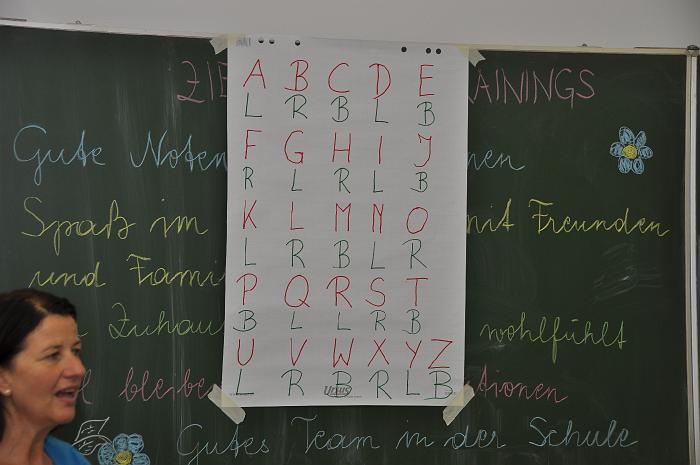 ZIE AININGS
Gute Noten nen
Spaß im mit Freunden
und Fami
Zuhau wohlfühlt
bleibe tionen
Gutes Team in der Schule
A B C D E
L R B L B
F G H I J
R L R L B
K L M N O
L R B L R
P Q R S T
B L L R B
U V W X Y Z
L R B R L B
Ursus